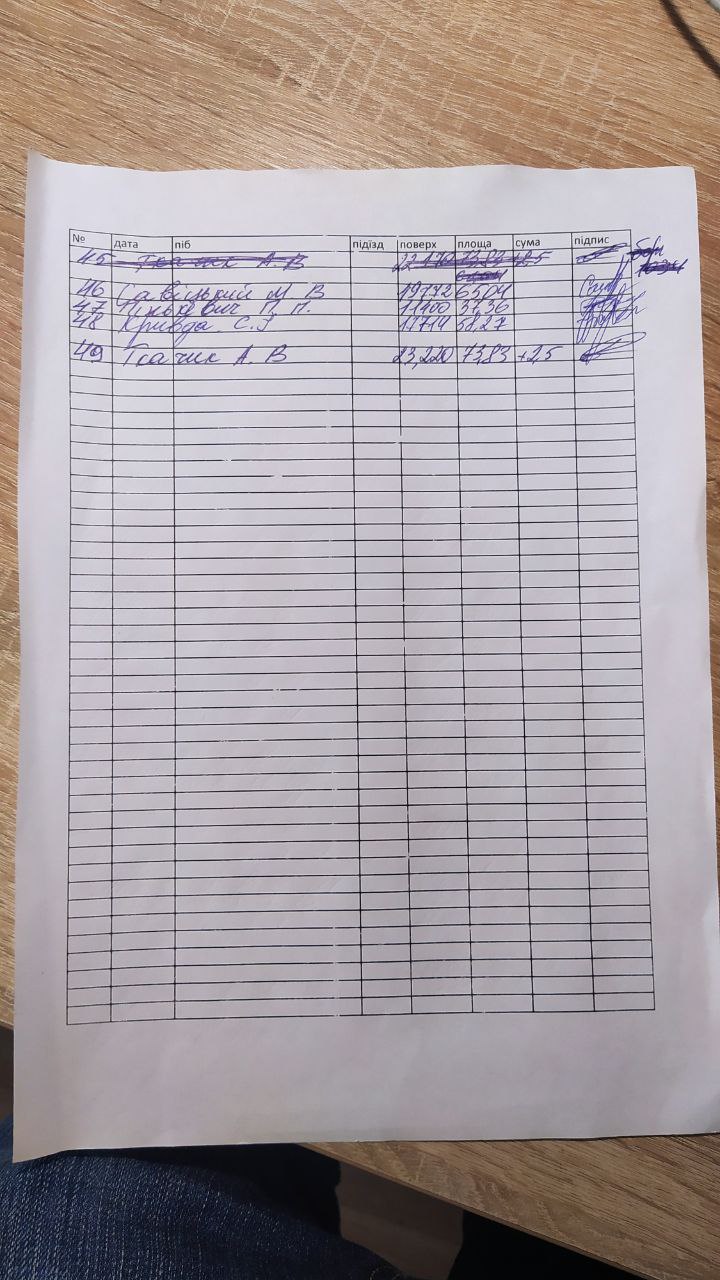 № дата піб під'їзд поверх площа сума підпис
45 Ткачик А. В 73,83
46 Савільский М В 19172 65,04
47 П. П. 11100 37,36
48 Кривда С. 58,27
49 Ткачик А. В 23,220 73,83 +2,5